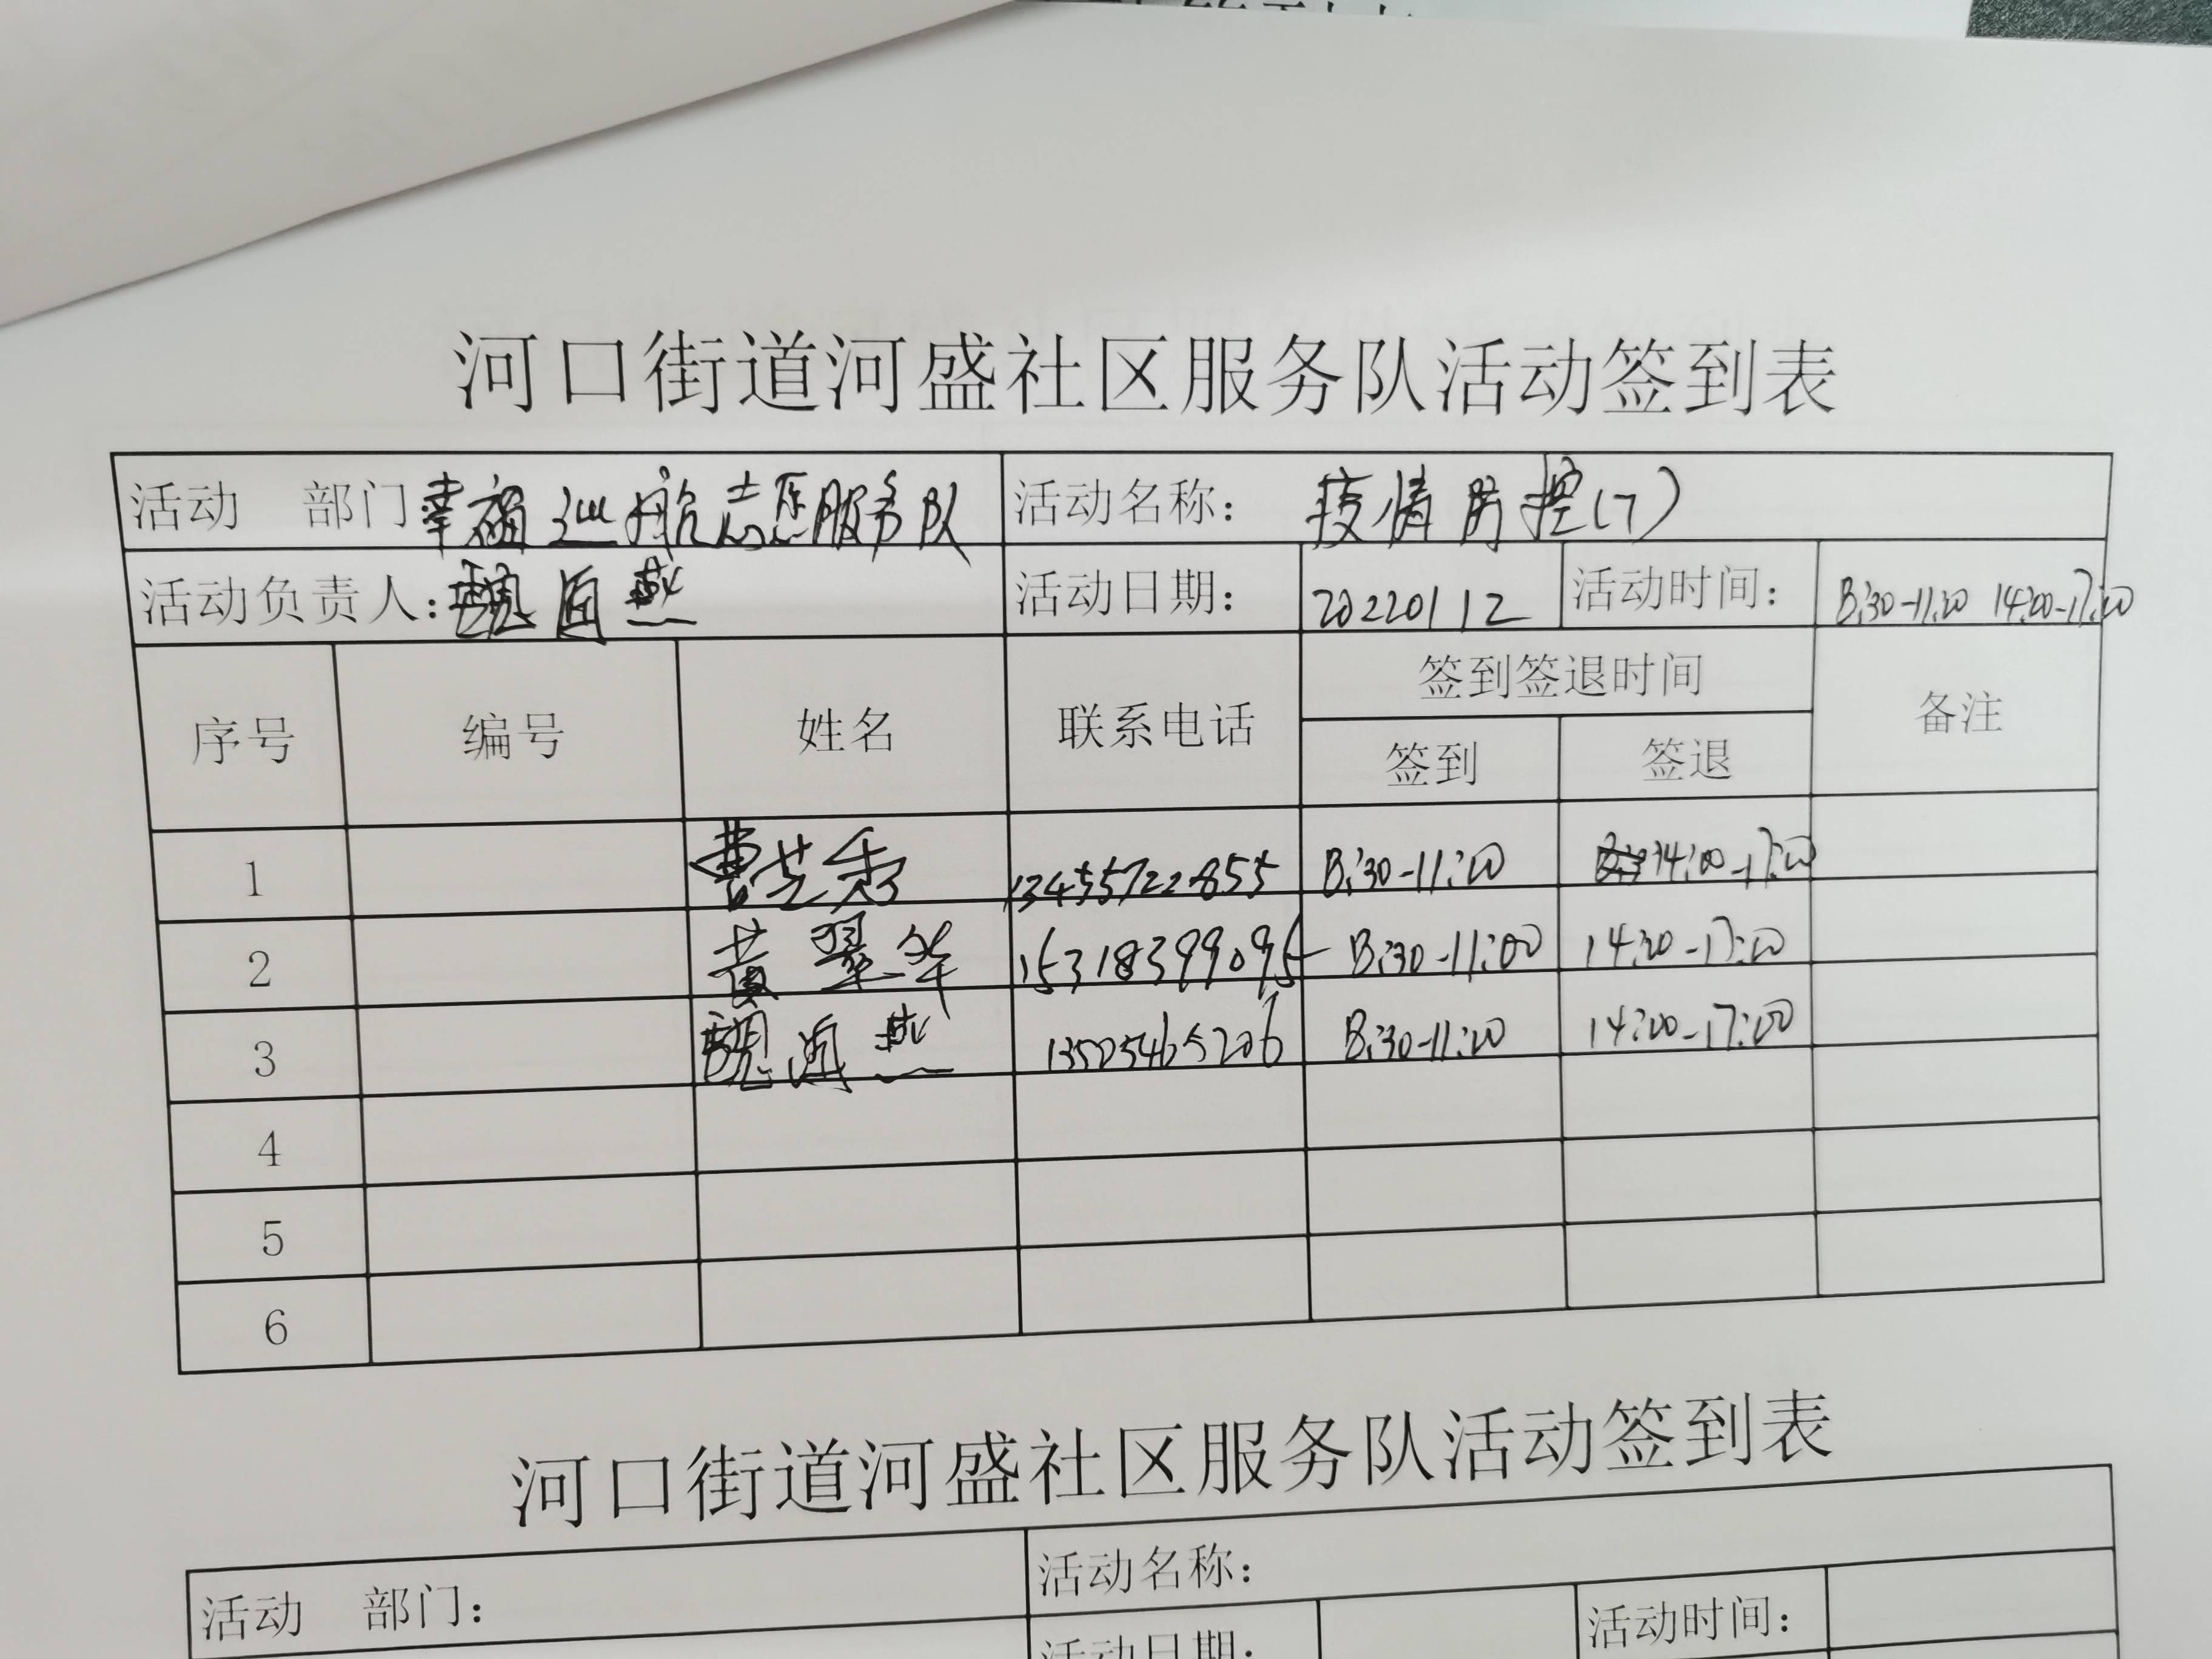 河口街道河盛社区服务队活动签到表
活动 部门 幸福巡航志愿服务队 活动名称： 疫情防控(7)
活动负责人：魏海燕 活动日期： 20220112 活动时间： 8:30-11:00 14:00-17:00
序号 编号 姓名 联系电话 签到签退时间 备注
签到 签退
1 曹芝秀 13455722855 8:30-11:00 14:00-17:00
2 黄翠华 15318399095 8:30-11:00 14:00-17:00
3 魏海燕 13505465206 8:30-11:00 14:00-17:00
4
5
6
河口街道河盛社区服务队活动签到表
活动 部门： 活动名称：
活动日期： 活动时间：